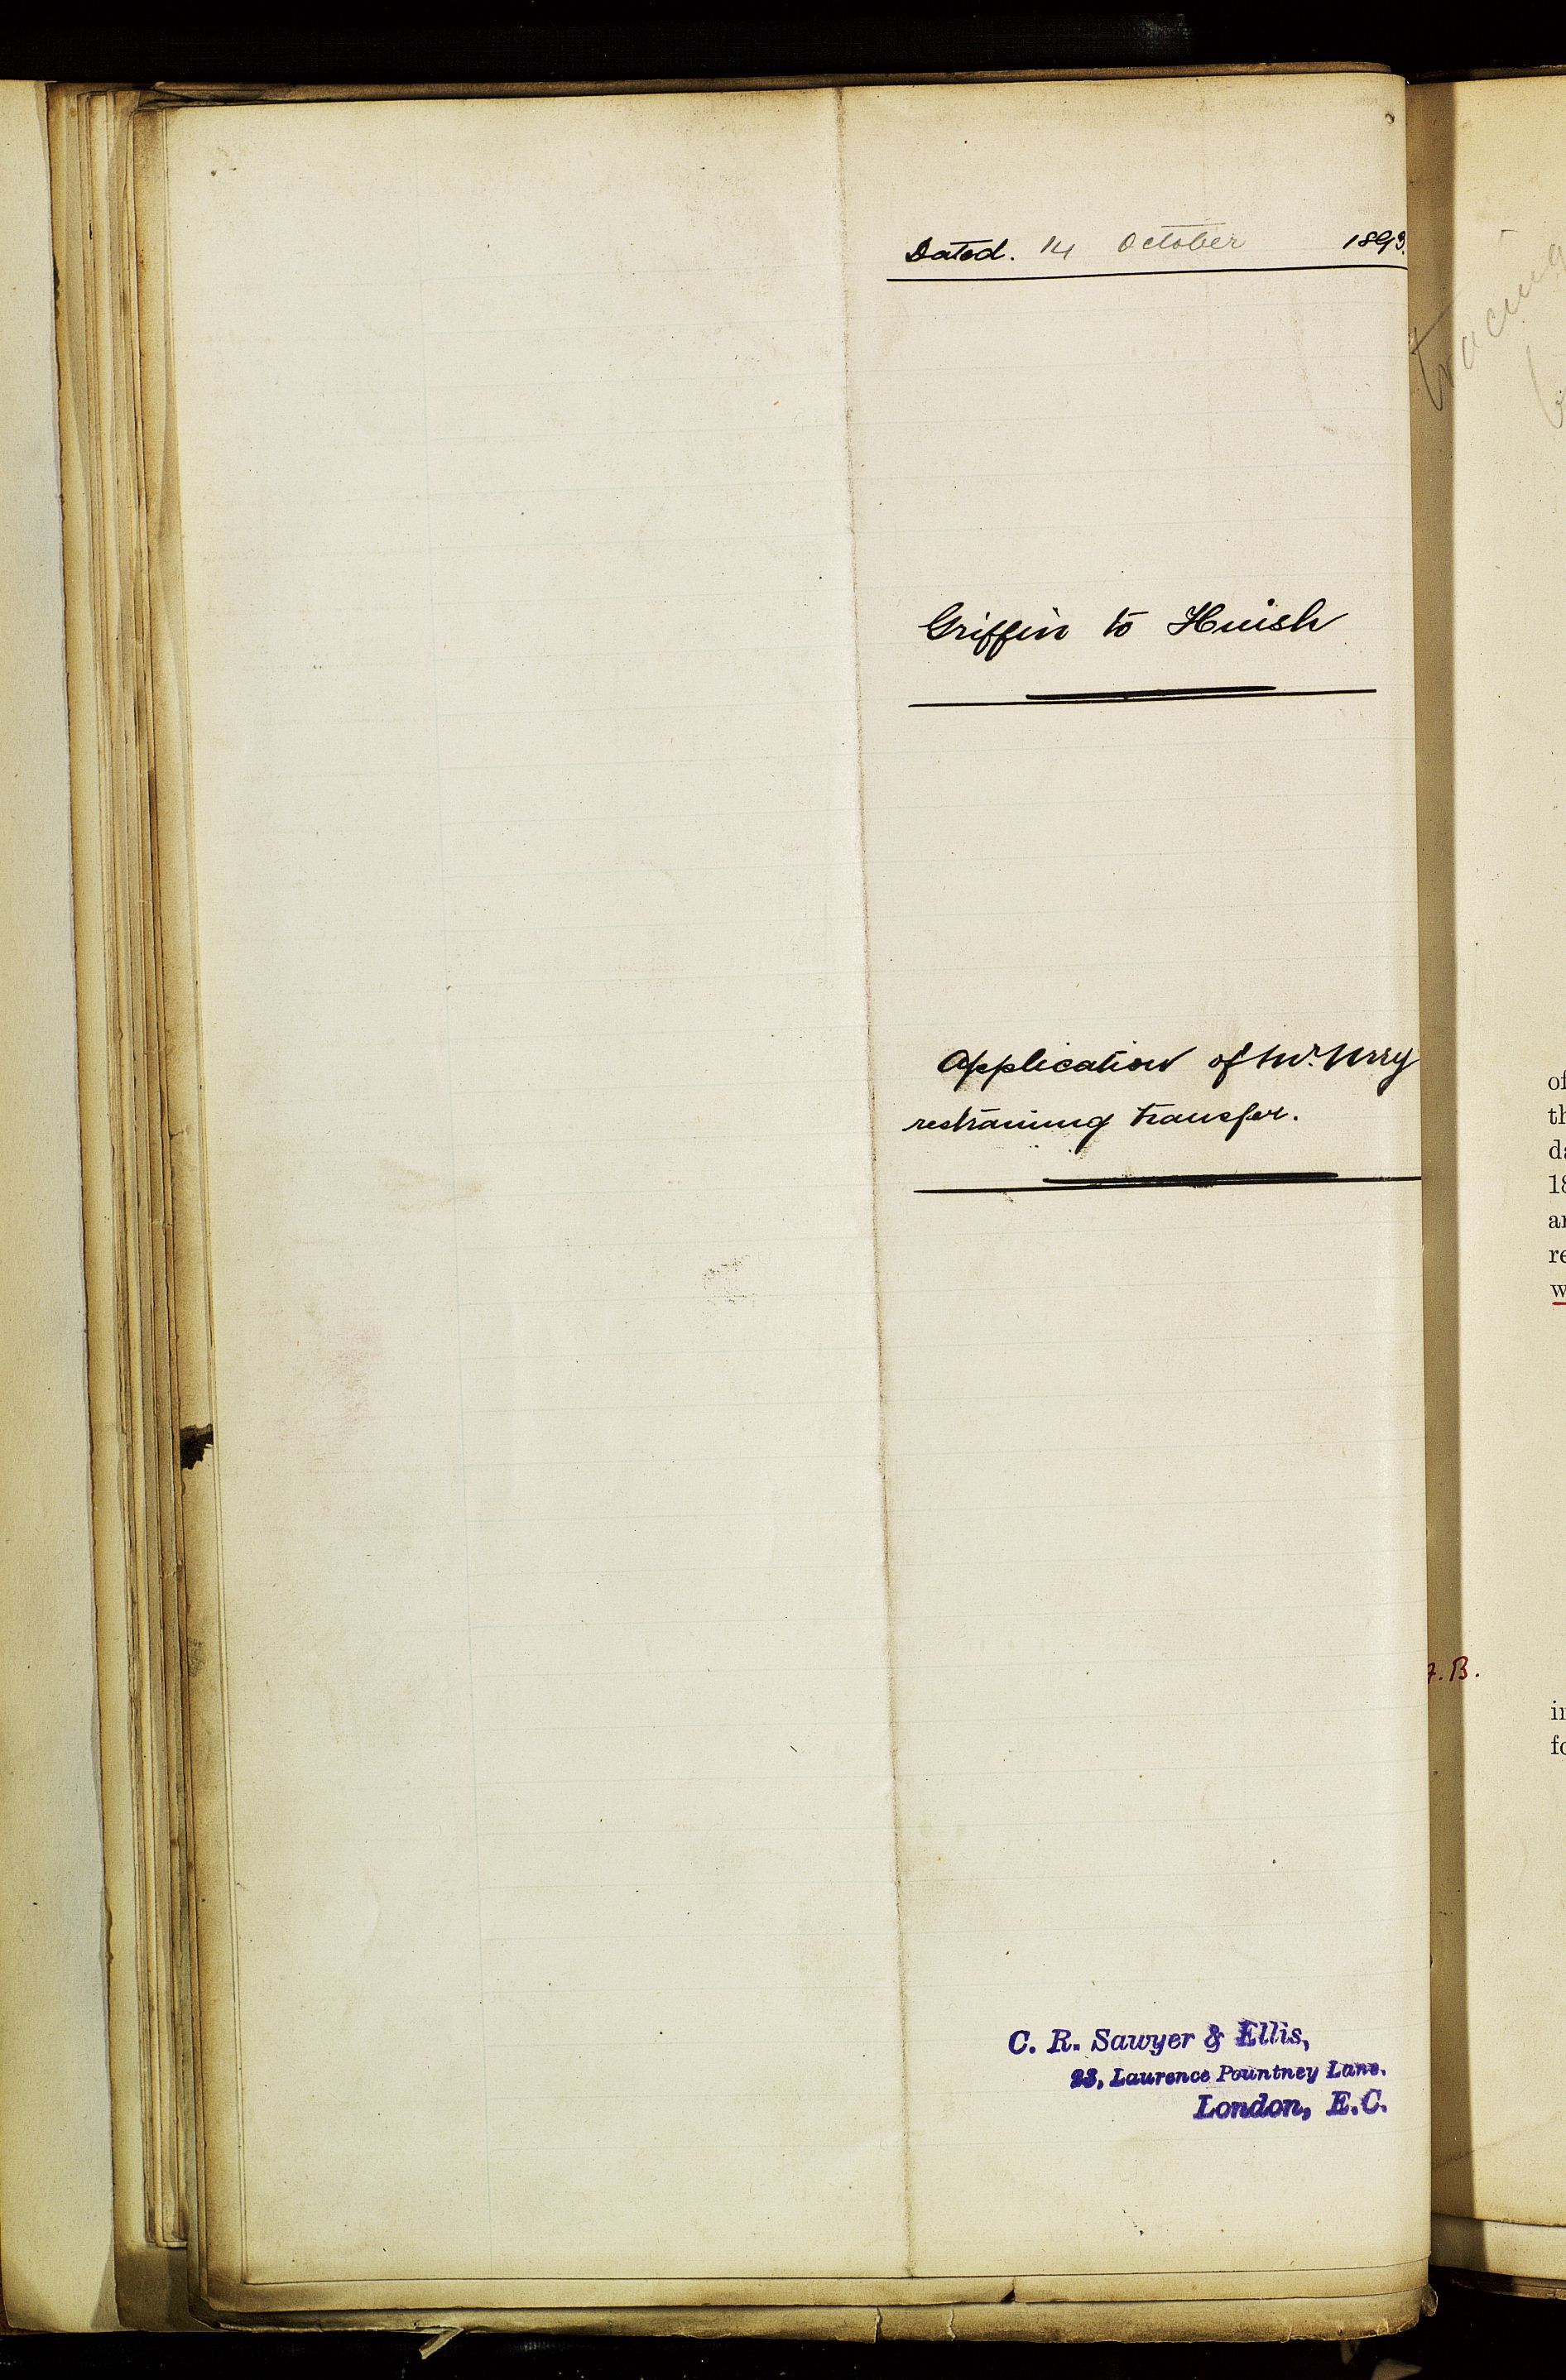 Dated. 14 October 1893.
Griffin to Huish
Application of Mr. Urry
restraining transfer.
C. R. Sawyer & Ellis,
23, Laurence Pountney Lane.
London, E.C.
tracing
of
18
re
w
B.